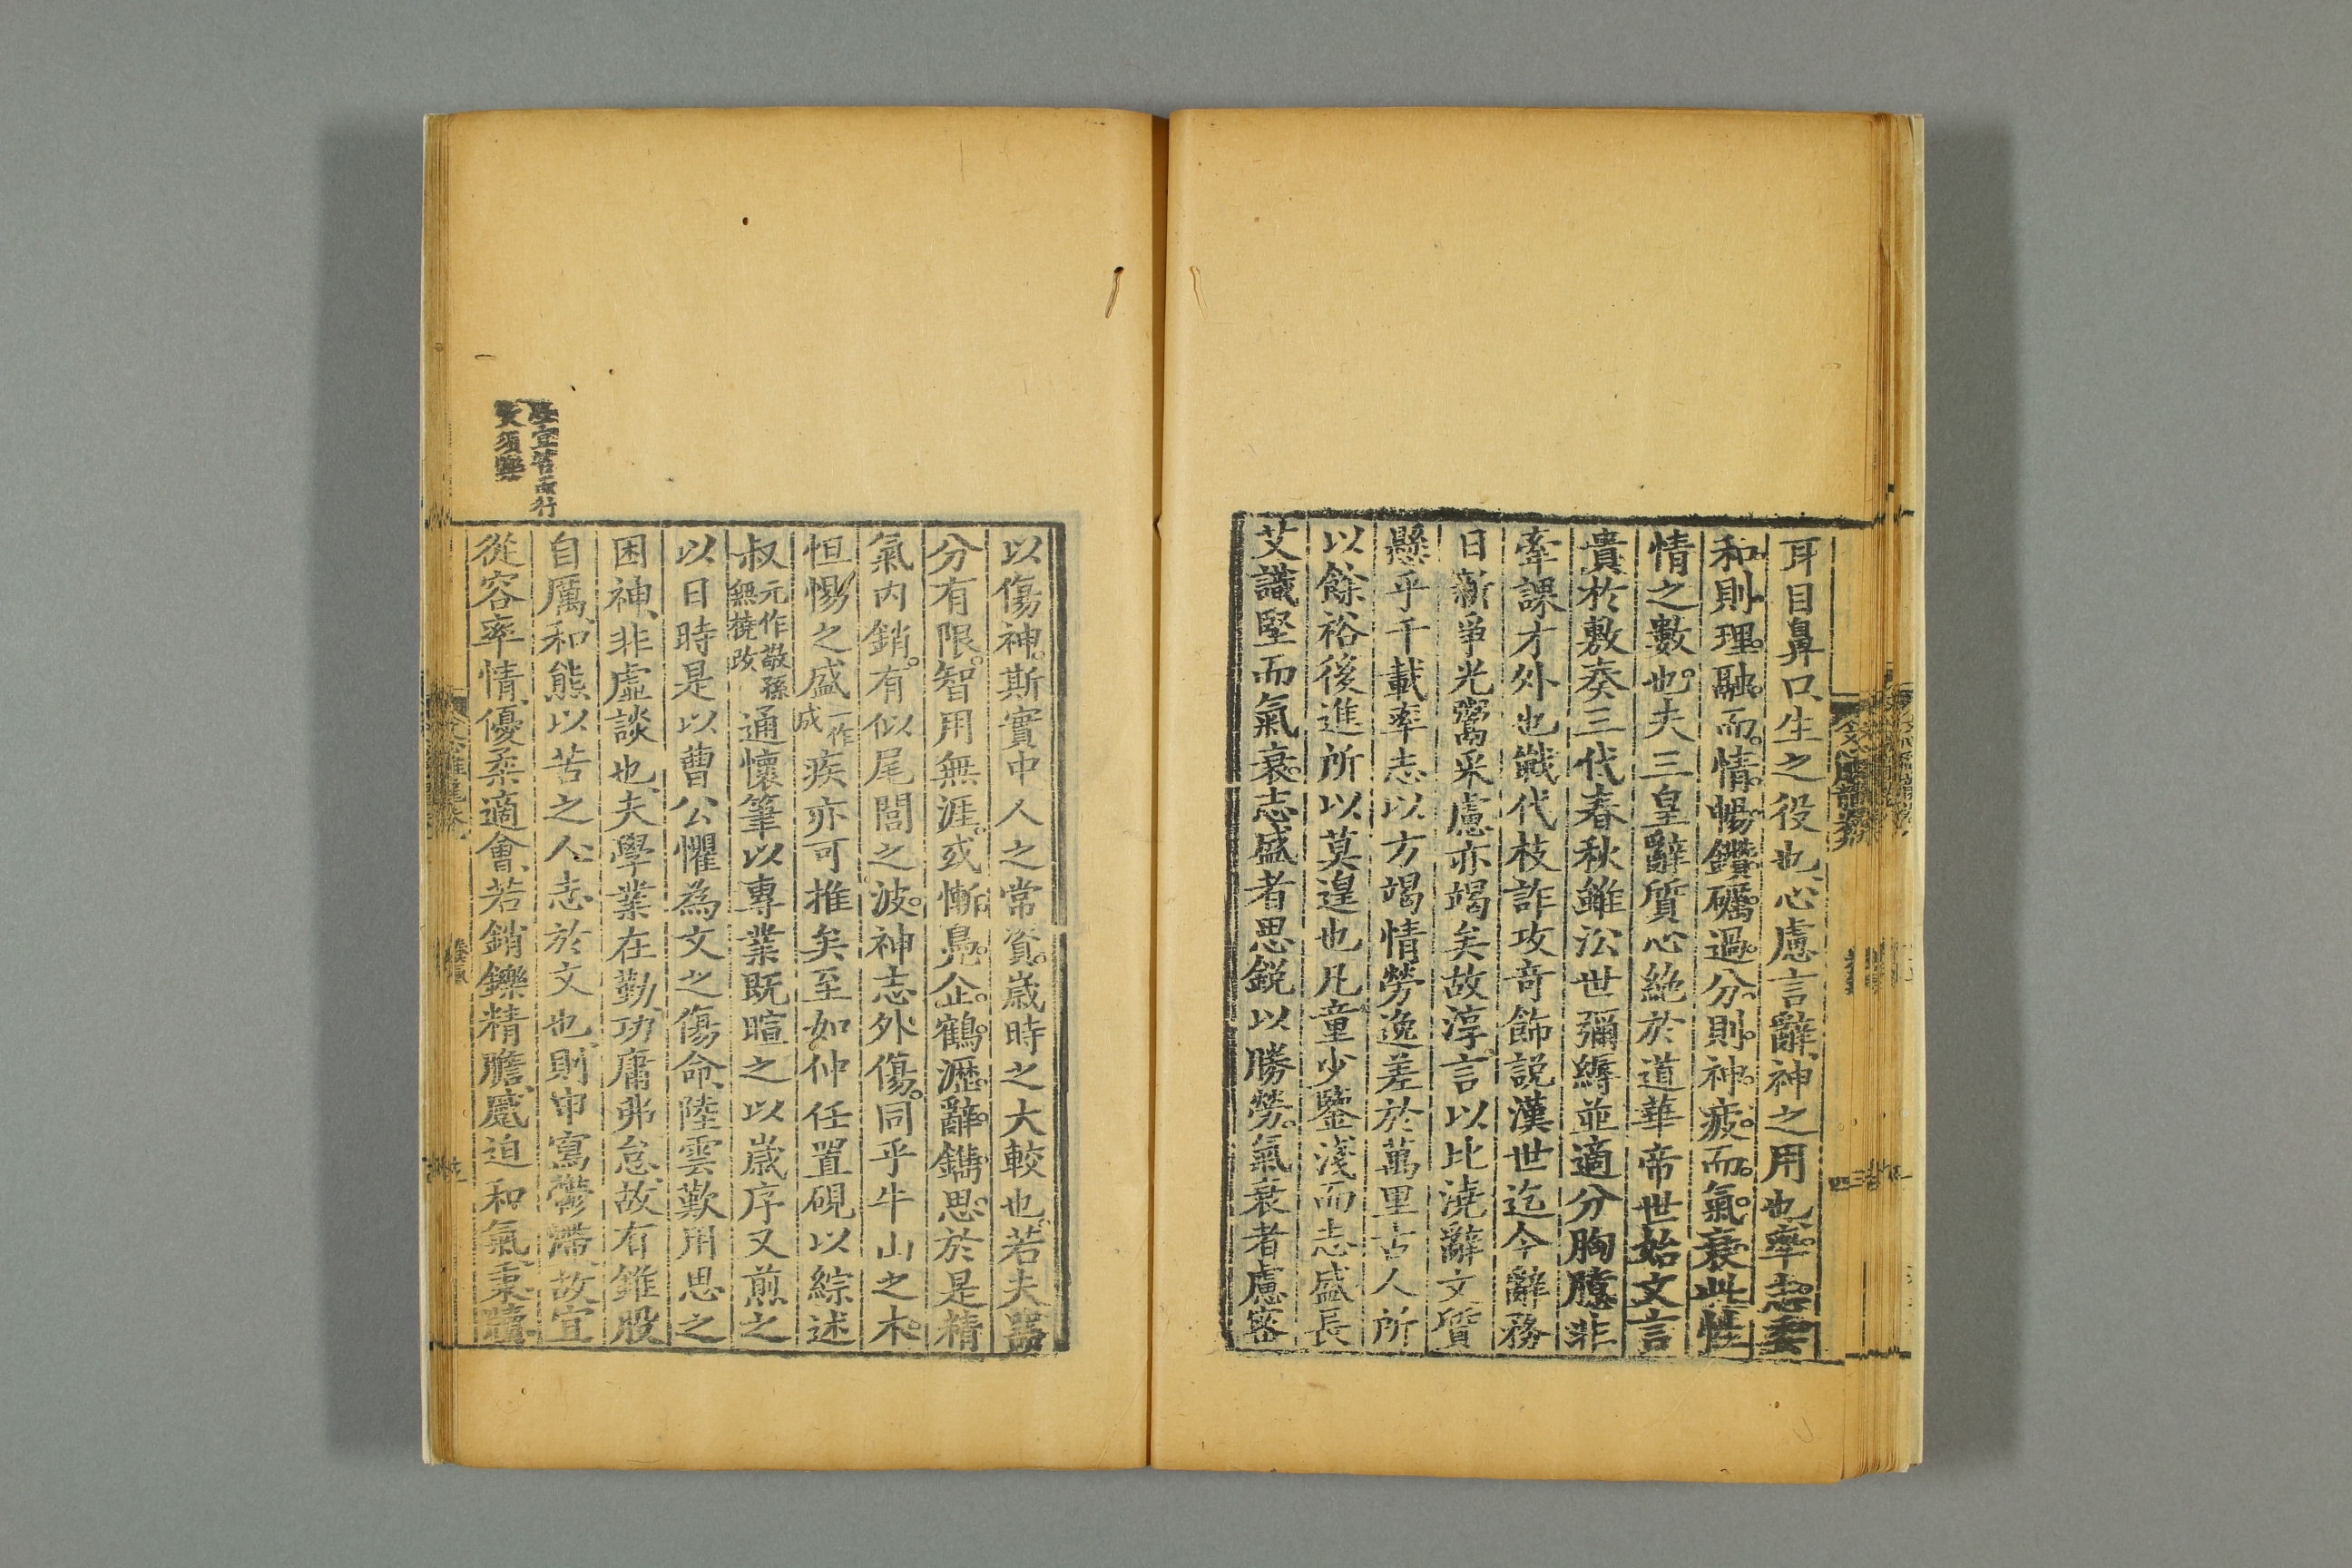 耳目鼻口生之役也心慮言辭神之用也率志委
和則理融而情暢鑽礪過分則神疲而氣衰此性
情之數也夫三皇辭質心絶於道華帝世始文言
貴於敷奏三代春秋雖㳂世彌縟並適分胸臆非
牽課才外也戰代枝詐攻奇飾説漢世迄今辭務
日新爭光鬻采慮亦竭矣故淳言以比澆辭文質
懸乎千載率志以方竭情勞逸差於萬里古人所
以餘裕後進所以莫遑也凡童少鑒淺而志盛長
艾識堅而氣衰志盛者思鋭以勝勞氣衰者慮密
以傷神斯實中人之常資歲時之大較也若夫器
分有限智用無涯或慚鳧企鶴瀝辭鐫思於是精
氣内銷有似尾閭之波神志外傷同乎牛山之木
怛惕之盛一作成疾亦可推矣至如仲任置硯以綜述
叔元作敬孫無撓改通懷筆以專業既暄之以歲序又煎之
以日時是以曹公懼為文之傷命陸雲歎用思之
困神非虛談也夫學業在勤功庸弗怠故有錐股
自厲和熊以苦之人志於文也則申寫鬱滯故宜
從容率情優柔適會若銷鑠精膽蹙迫和氣秉牘